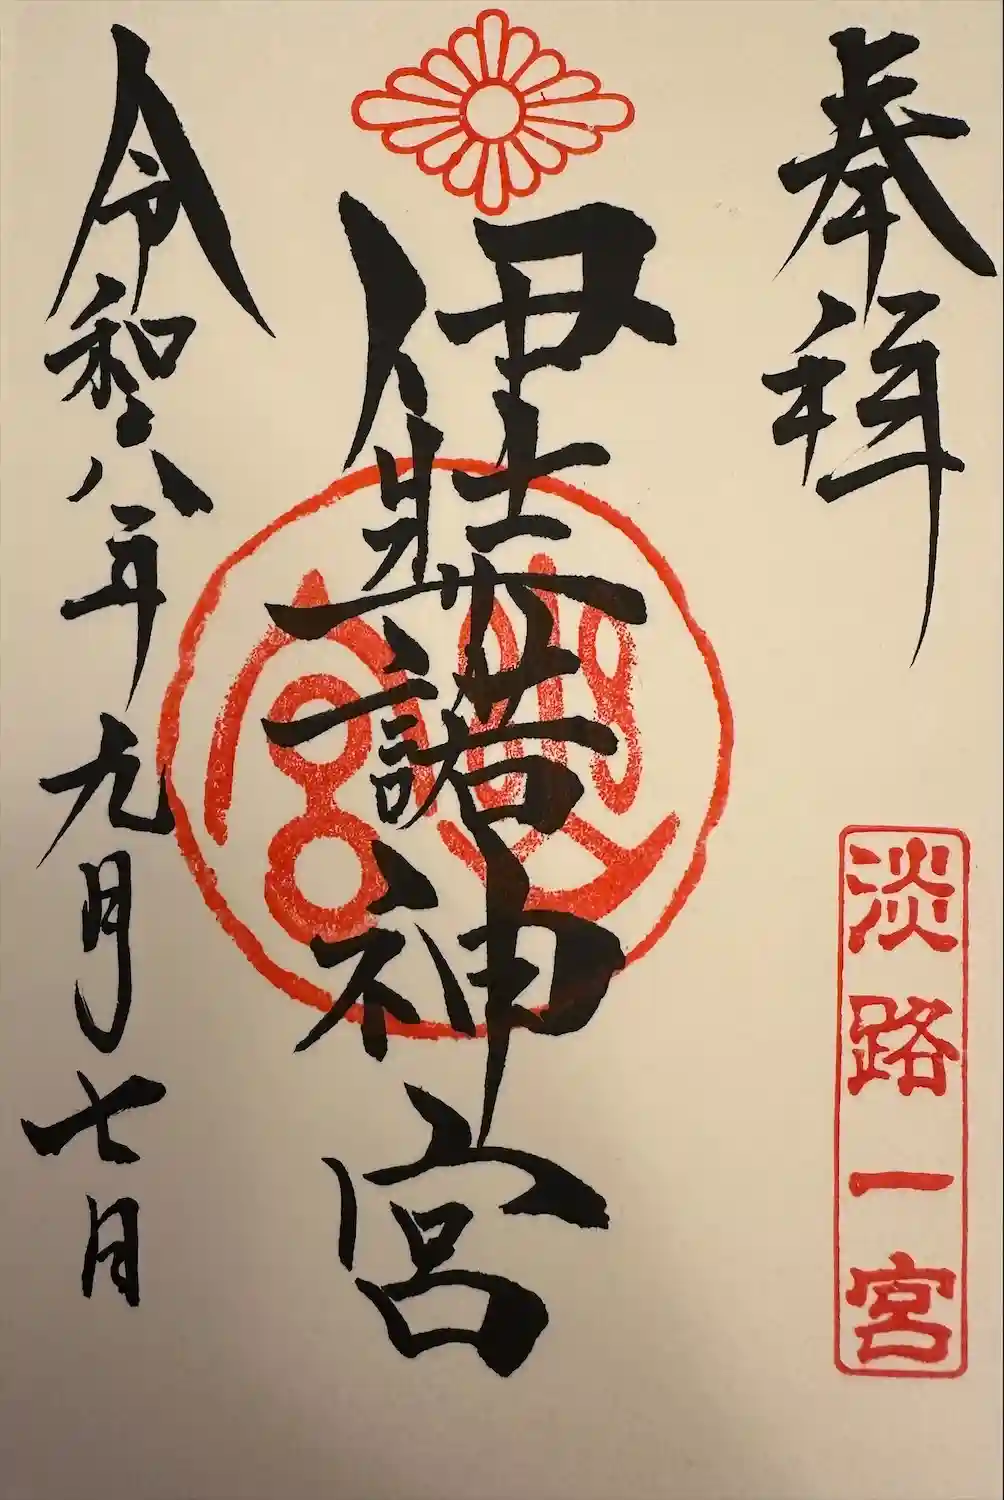 奉拝
淡路一宮
伊弉諾神宮
幽宮
令和八年九月七日